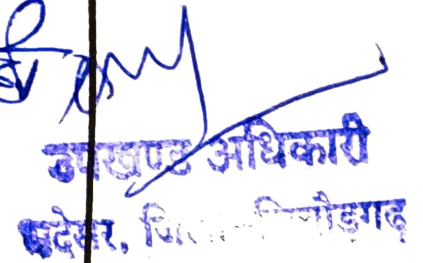 उपखण्ड अधिकारी
भदेसर, जि... चित्तौडगढ़